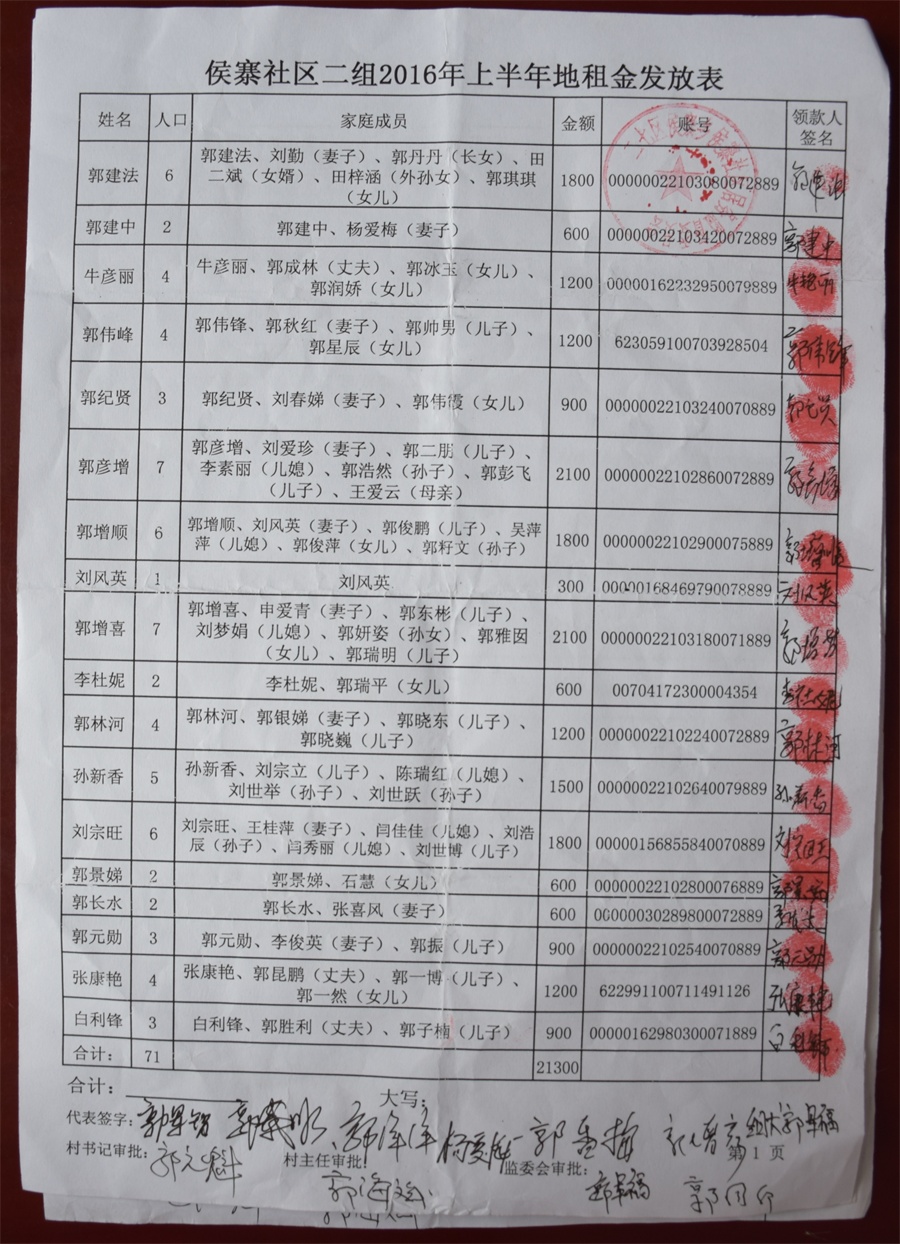 侯寨社区二组2016年上半年地租金发放表
姓名 人口 家庭成员 金额 账号 领款人
签名
郭建法 6 郭建法、刘勤（妻子）、郭丹丹（长女）、田
二斌（女婿）、田梓涵（外孙女）、郭琪琪
（女儿） 1800 00000022103080072889
郭建中 2 郭建中、杨爱梅（妻子） 600 00000022103420072889 郭建中
牛彦丽 4 牛彦丽、郭成林（丈夫）、郭冰玉（女儿）、
郭润娇（女儿） 1200 00000162232950079889
郭伟峰 4 郭伟锋、郭秋红（妻子）、郭帅男（儿子）、
郭星辰（女儿） 1200 623059100703928504 郭伟锋
郭纪贤 3 郭纪贤、刘春娣（妻子）、郭伟霞（女儿） 900 00000022103240070889
郭彦增 7 郭彦增、刘爱珍（妻子）、郭二朋（儿子）、
李素丽（儿媳）、郭浩然（孙子）、郭彭飞
（儿子）、王爱云（母亲） 2100 00000022102860072889
郭增顺 6 郭增顺、刘风英（妻子）、郭俊鹏（儿子）、吴萍
萍（儿媳）、郭俊萍（女儿）、郭籽文（孙子） 1800 00000022102900075889
刘风英 1 刘风英 300 00000168469790078889
郭增喜 7 郭增喜、申爱青（妻子）、郭东彬（儿子）、
刘梦娟（儿媳）、郭妍姿（孙女）、郭雅囡
（女儿）、郭瑞明（儿子） 2100 00000022103180071889
李杜妮 2 李杜妮、郭瑞平（女儿） 600 00704172300004354
郭林河 4 郭林河、郭银娣（妻子）、郭晓东（儿子）、
郭晓巍（儿子） 1200 00000022102240072889 郭林河
孙新香 5 孙新香、刘宗立（儿子）、陈瑞红（儿媳）、
刘世举（孙子）、刘世跃（孙子） 1500 00000022102640079889 孙新香
刘宗旺 6 刘宗旺、王桂萍（妻子）、闫佳佳（儿媳）、刘浩
辰（孙子）、闫秀丽（儿媳）、刘世博（儿子） 1800 00000156855840070889
郭景娣 2 郭景娣、石慧（女儿） 600 00000022102800076889
郭长水 2 郭长水、张喜风（妻子） 600 00000030289800072889
郭元勋 3 郭元勋、李俊英（妻子）、郭振（儿子） 900 00000022102540070889 郭元勋
张康艳 4 张康艳、郭昆鹏（丈夫）、郭一博（儿子）、
郭一然（女儿） 1200 622991100711491126 张康艳
白利锋 3 白利锋、郭胜利（丈夫）、郭子楠（儿子） 900 00000162980300071889 白利锋
合计： 71 21300
合计： 大写：
代表签字： 第 1 页
村书记审批： 郭元魁 村主任审批： 监委会审批：